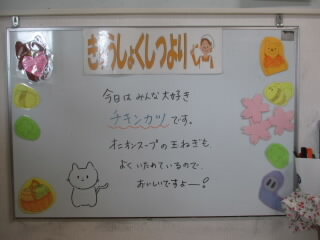 きゅうしょくしつより
今日は みんな大好き
チキンカツです。
オニオンスープの玉ねぎも
よくいためているので、
おいしいですよー!